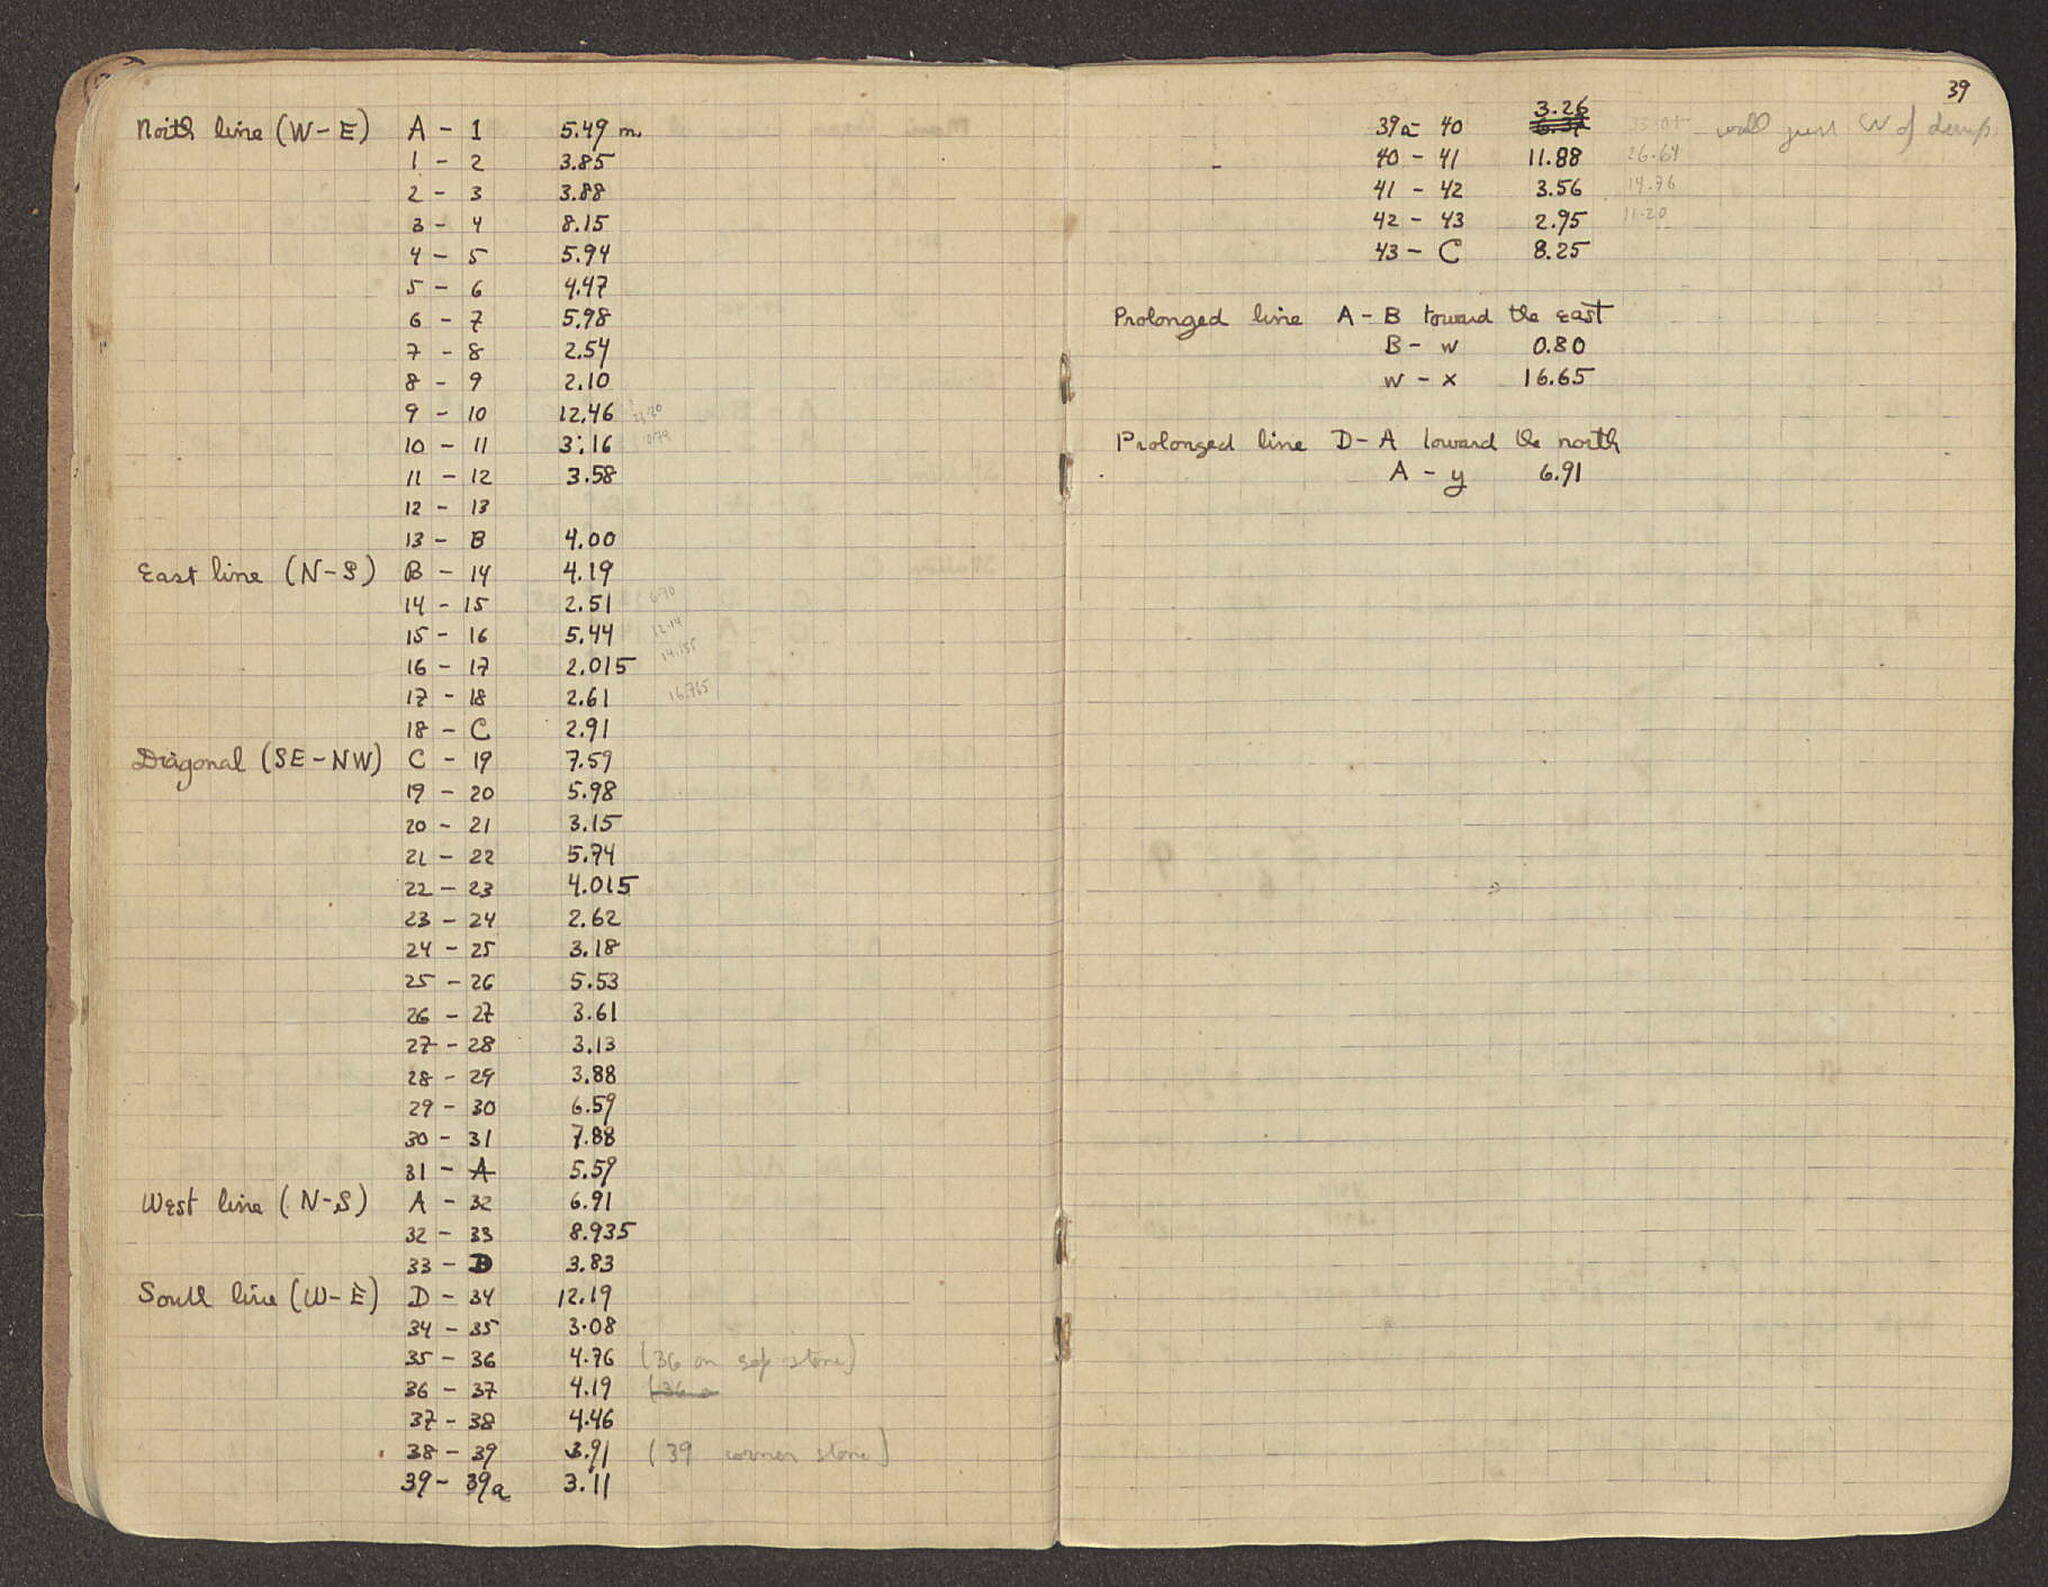 North line (W-E) A - 1 5.49 m.
1 - 2 3.85
2 - 3 3.88
3 - 4 8.15
4 - 5 5.94
5 - 6 4.47
6 - 7 5.98
7 - 8 2.54
8 - 9 2.10
9 - 10 12.46
10 - 11 3.16
11 - 12 3.58
12 - 13
13 - B 4.00
East line (N-S) B - 14 4.19
14 - 15 2.51 6.70
15 - 16 5.44 12.14
16 - 17 2.015 14.155
17 - 18 2.61 16.765
18 - C 2.91
Diagonal (SE-NW) C - 19 7.59
19 - 20 5.98
20 - 21 3.15
21 - 22 5.74
22 - 23 4.015
23 - 24 2.62
24 - 25 3.18
25 - 26 5.53
26 - 27 3.61
27 - 28 3.13
28 - 29 3.88
29 - 30 6.59
30 - 31 7.88
31 - A 5.59
West line (N-S) A - 32 6.91
32 - 33 8.935
33 - D 3.83
South line (W-E) D - 34 12.19
34 - 35 3.08
35 - 36 4.76 (36 on sep stone)
36 - 37 4.19 (36 o
37 - 38 4.46
38 - 39 3.91 (39 corner stone)
39 - 39a 3.11
39
3.26
39a - 40 6.37 wall just W of dump
40 - 41 11.88 26.64
41 - 42 3.56 14.76
42 - 43 2.95 11.20
43 - C 8.25
Prolonged line A - B toward the east
B - w 0.80
w - x 16.65
Prolonged line D - A toward the north
A - y 6.91